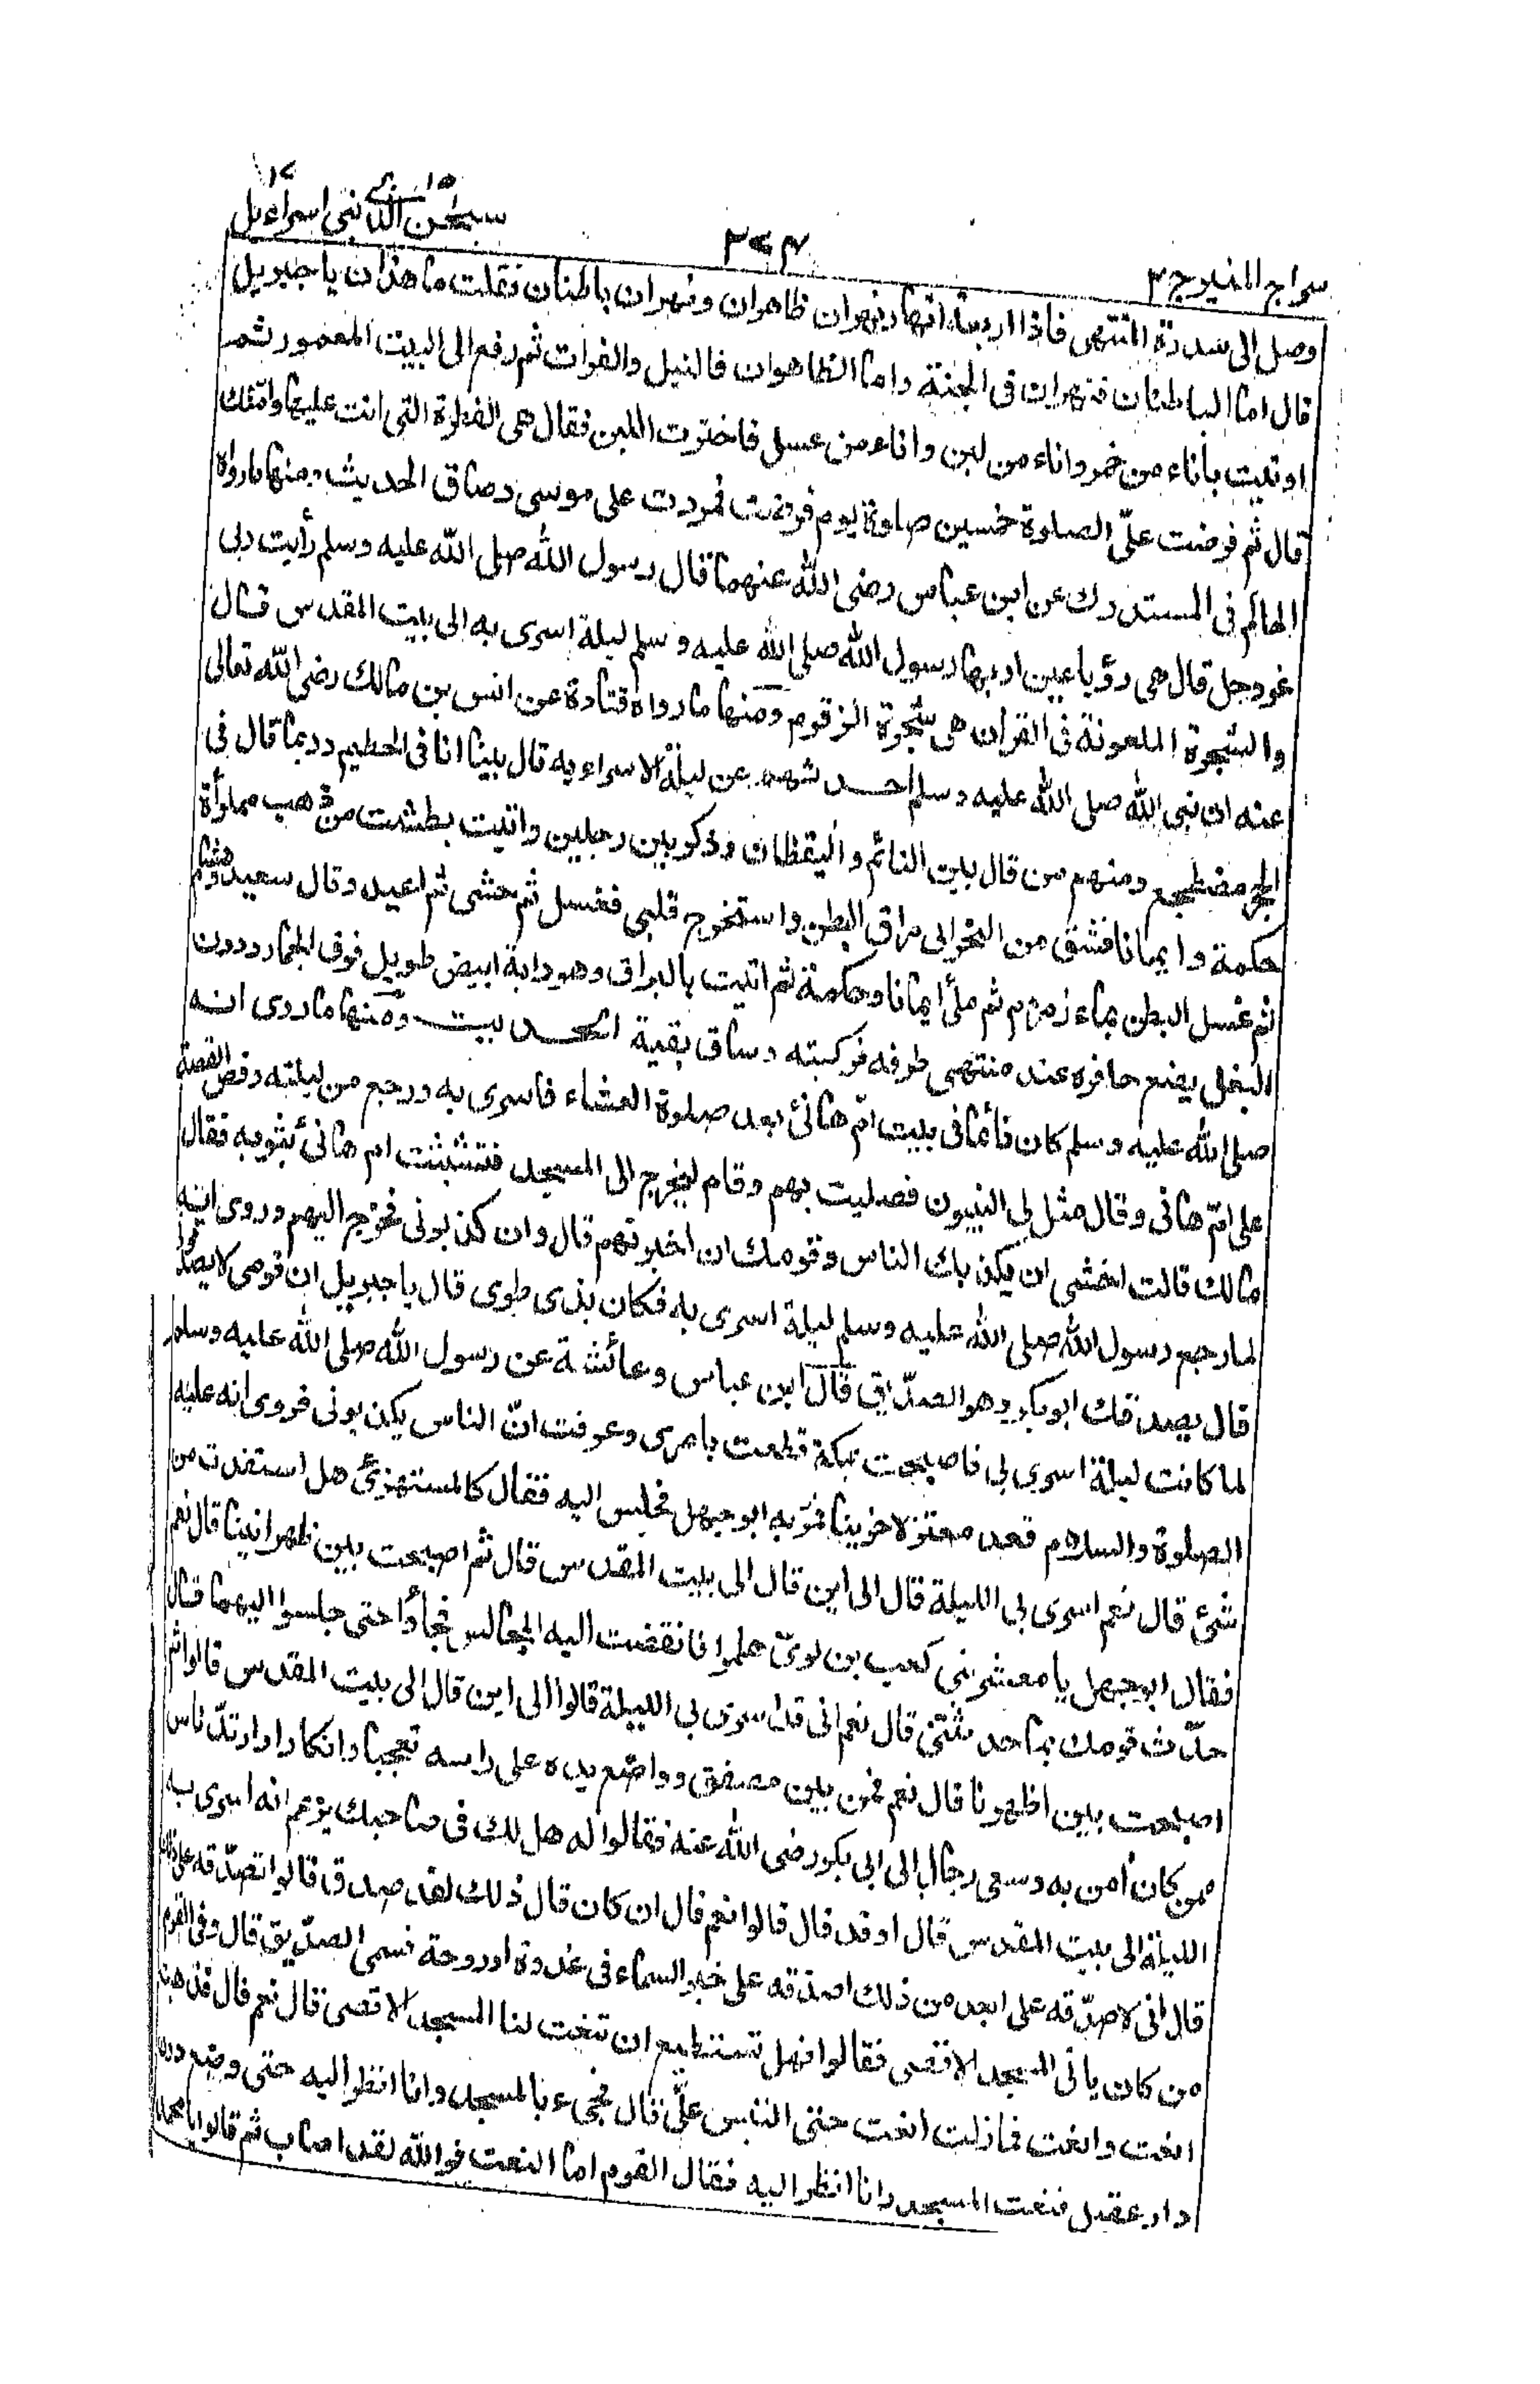 سراج المنير ج ٣
٢٧٤
سبحٰن الذي ١٥ بنى اسراءيل ١٧
وصل الى سدرة المنتهى فاذا اربعة انهار نهران ظاهران ونهران باطنان فقلت ما هذان يا جبريل
قال اما الباطنان فنهران فى الجنة واما الظاهران فالنيل والفرات ثم رفع الى البيت المعمور ثم
اوتيت بأناء من خمر واناء من لبن واناء من عسل فاخترت اللبن فقال هى الفطرة التى انت عليها وامتك
قال ثم فرضت علىّ الصلوة خمسين صلوة يوم فرجعت فمررت على موسى وساق الحديث ومنها ما رواه
الحاكم فى المستدرك عن ابن عباس رضى الله عنهما قال رسول الله صلى الله عليه وسلم رأيت ربى
عز وجل قال هى رؤيا عين اريها رسول الله صلى الله عليه وسلم ليلة اسرى به الى بيت المقدس قال
والشجرة الملعونة فى القران هى شجرة الزقوم ومنها ما رواه قتادة عن انس بن مالك رضى الله تعالى
عنه ان نبى الله صلى الله عليه وسلم حدثهم عن ليلة الاسراء به قال بينا انا فى الحطيم وربما قال فى
الحجر مضطجع ومنهم من قال بين النائم واليقظان وذكر بين رجلين واتيت بطشت من ذهب مملوأة
حكمة وايمانا فشق من النحر الى مراق البطن واستخرج قلبى فغسل ثم حشى ثم اعيد وقال سعيد وهشام
ثم غسل البطن بماء زمزم ثم ملئ ايمانا وحكمة ثم اتيت بالبراق وهو دابة ابيض طويل فوق الحمار ودون
البغل يضع حافره عند منتهى طرفه فركبته وساق بقية الحديث ومنها ما روى انه
صلى الله عليه وسلم كان نأما فى بيت ام هانئ بعد صلوة العشاء فاسرى به ورجع من ليلته وقص القصة
على ام هانى وقال مثل لى النبيون فصليت بهم وقام ليخرج الى المسجد فتشبثت ام هانئ بثوبه فقال
مالك قالت اخشى ان يكذبك الناس وقومك ان اخبرتهم قال وان كذبونى فخرج اليهم وروى انه
لما رجع رسول الله صلى الله عليه وسلم ليلة اسرى به فكان بذى طوى قال يا جبريل ان قومى لا يصدقونى
قال يصدقك ابوبكر وهو الصدّيق قال ابن عباس وعائشة عن رسول الله صلى الله عليه وسلم
لما كانت ليلة اسرى بى فاصبحت بمكة قطعت بامرى وعرفت انّ الناس يكذبونى فروى انه عليه
الصلوة والسلام قعد معتزلا حزينا فمرّ به ابو جهل فجلس اليه فقال كالمستهزئ هل استفدت من
شئ قال نعم اسرى بى الليلة قال الى اين قال الى بيت المقدس قال ثم اصبحت بين ظهرانينا قال نعم
فقال ابوجهل يا معشر بنى كعب بن لوىّ هلموا فانقضت اليه المجالس فجاؤا حتى جلسوا اليهما قال
حدّث قومك بما حدثتنى قال نعم انى قد اسرى بى الليلة قالوا الى اين قال الى بيت المقدس قالوا ثم
اصبحت بين اظهرنا قال نعم فمن بين مصفق وواضع يده على راسه تعجبا وانكارا وارتدّ ناس
ممن كان أمن به وسعى رجال الى ابى بكر رضى الله عنه فقالوا له هل لك فى صاحبك يزعم انه اسرى به
الليلة الى بيت المقدس قال اوقد قال قالوا نعم قال ان كان قال ذلك لقد صدق قالوا تصدّقه على ذلك
قال انى لاصدّقه على ابعد من ذلك اصدقه على خبر السماء فى غدوة او روحة فسمى الصدّيق قال وفى القوم
من كان يأتى المسجد الاقصى فقالوا فهل تستطيع ان تنعت لنا المسجد الاقصى قال نعم قال فذهبت
انعت وانعت فمازلت انعت حتى التبس علىّ قال فجىء بالمسجد وانا انظر اليه حتى وضع دون
دار عقيل فنعت المسجد وانا انظر اليه فقال القوم اما النعت فوالله لقد اصاب ثم قالوا يا محمد